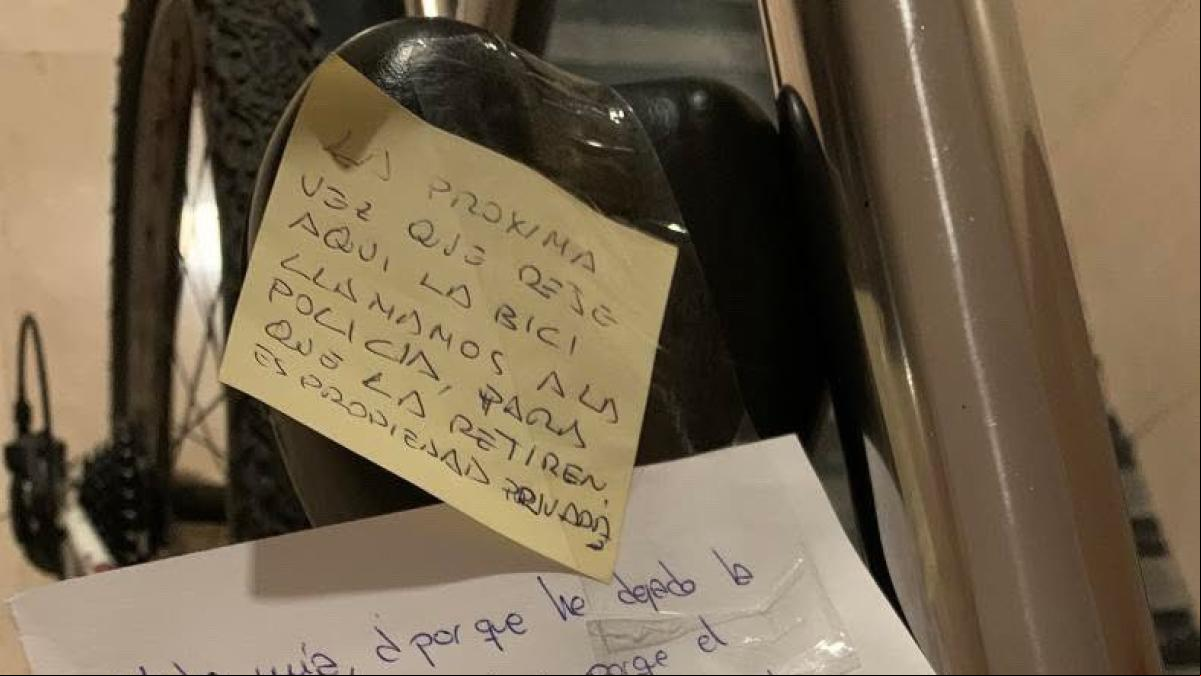 LA PROXIMA
VEZ QUE DEJE
AQUI LA BICI
LLAMAMOS A LA
POLICIA, PARA
QUE LA RETIREN.
ES PROPIEDAD PRIVADA
mía, ¿por que he dejado la
porqe el